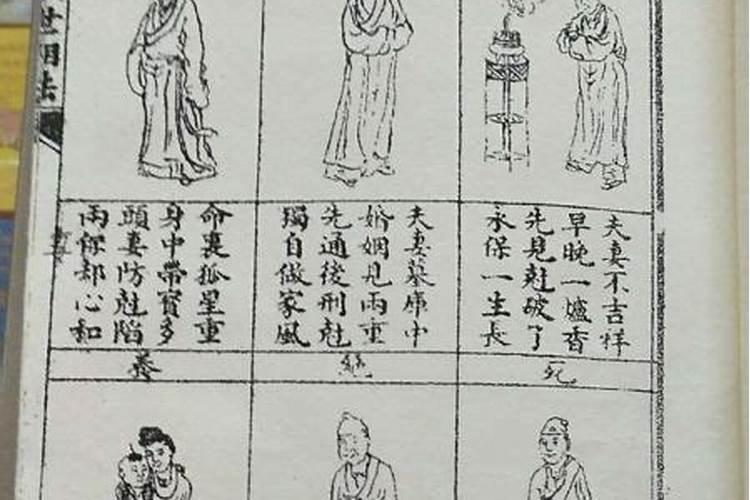 世相法
夫妻不吉祥
早晚一爐香
先見尅破了
永保一生長
夫妻墓庫中
婚姻見兩重
先通後刑尅
獨自做家風
命裏孤星重
身中帶寶多
頭妻防尅陷
兩保却心和
死
絕
養